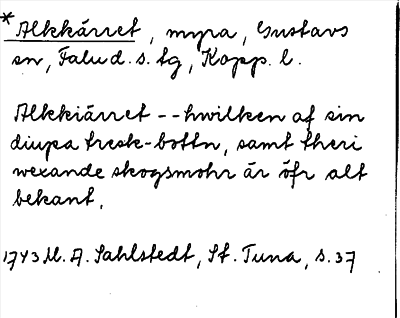 *Alkkärret, myra, Gustavs
sn, Falu d. s. tg, Kopp. l.
Alkkiärret -- hwilken af sin
diupa tresk-bottn, samt theri
wexande skogsmohr är öfr alt
bekant.
1743 M. A. Sahlstedt, St. Tuna, s. 37